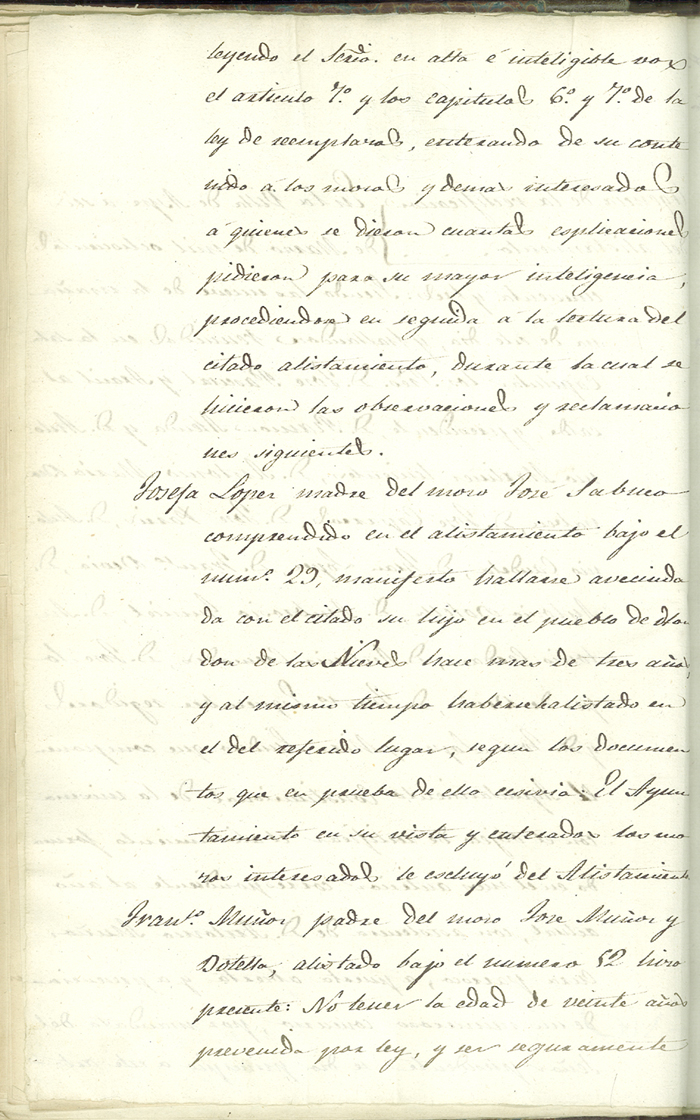 leyendo el Scrio. en alta é inteligible vox
el articulo 7º. y los capitulos 6º. y 7º. de la
ley de reemplazos, enterando de su conte
nido á los mozos y demas interesados
á quienes se dieron cuantas esplicaciones
pidieron para su mayor inteligencia,
procediendose en seguida á la lectura del
citado alistamiento, durante la cual se
hicieron las observaciones y reclamacio
nes siguientes.
Josefa Lopez madre del mozo José Sabuco
comprendido en el alistamiento bajo el
num.º 29, manifesto hallarse avecinda
da con el citado su hijo en el pueblo de
don de las Nieves hace mas de tres años,
y al mismo tiempo haberse halistado en
el del referido lugar, segun los documen
tos que en prueba de ello esivia: El Ayun
tamiento en su vista y enterados los mo
zos interesados le escluyó del Alistamiento
Fran.co Muñoz padre del mozo José Muñoz y
Botella, alistado bajo el numero 52 hizo
presente: No tener la edad de veinte años
prevenida por ley, y ser seguramente